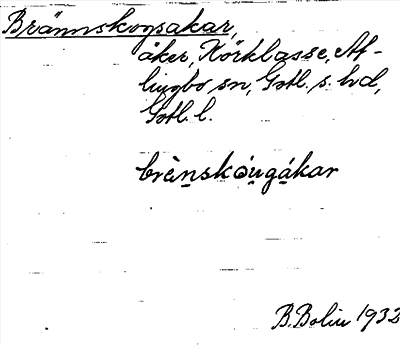 Brännskogsakar,
åker, Körklasse, At-
lingbo sn, Gotl. s. hd,
Gotl. l.
brènskóugákar
B. Bolin 1932